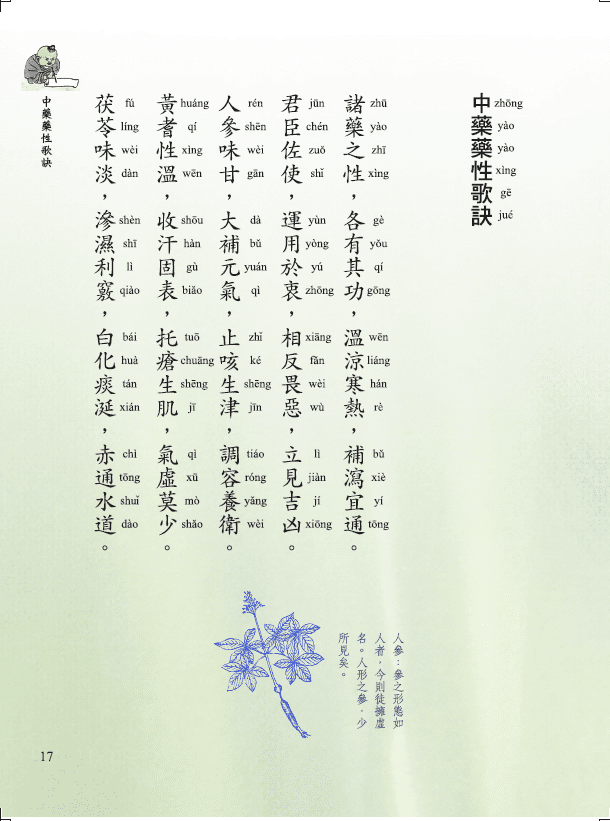 中藥藥性歌訣
zhōng yào yào xìng gē jué
諸藥之性，各有其功，溫涼寒熱，補瀉宜通。
zhū yào zhī xìng gè yǒu qí gōng wēn liáng hán rè bǔ xiè yí tōng
君臣佐使，運用於衷，相反畏惡，立見吉凶。
jūn chén zuǒ shǐ yùn yòng yú zhōng xiāng fǎn wèi wù lì jiàn jí xiōng
人參味甘，大補元氣，止咳生津，調容養衛。
rén shēn wèi gān dà bǔ yuán qì zhǐ ké shēng jīn tiáo róng yǎng wèi
黃耆性溫，收汗固表，托瘡生肌，氣虛莫少。
huáng qí xìng wēn shōu hàn gù biǎo tuō chuāng shēng jī qì xū mò shǎo
茯苓味淡，滲濕利竅，白化痰涎，赤通水道。
fú líng wèi dàn shèn shī lì qiào bái huà tán xián chì tōng shuǐ dào
人參：參之形態如
人者，今則徒擁虛
名。人形之參，少
所見矣。
中藥藥性歌訣
17